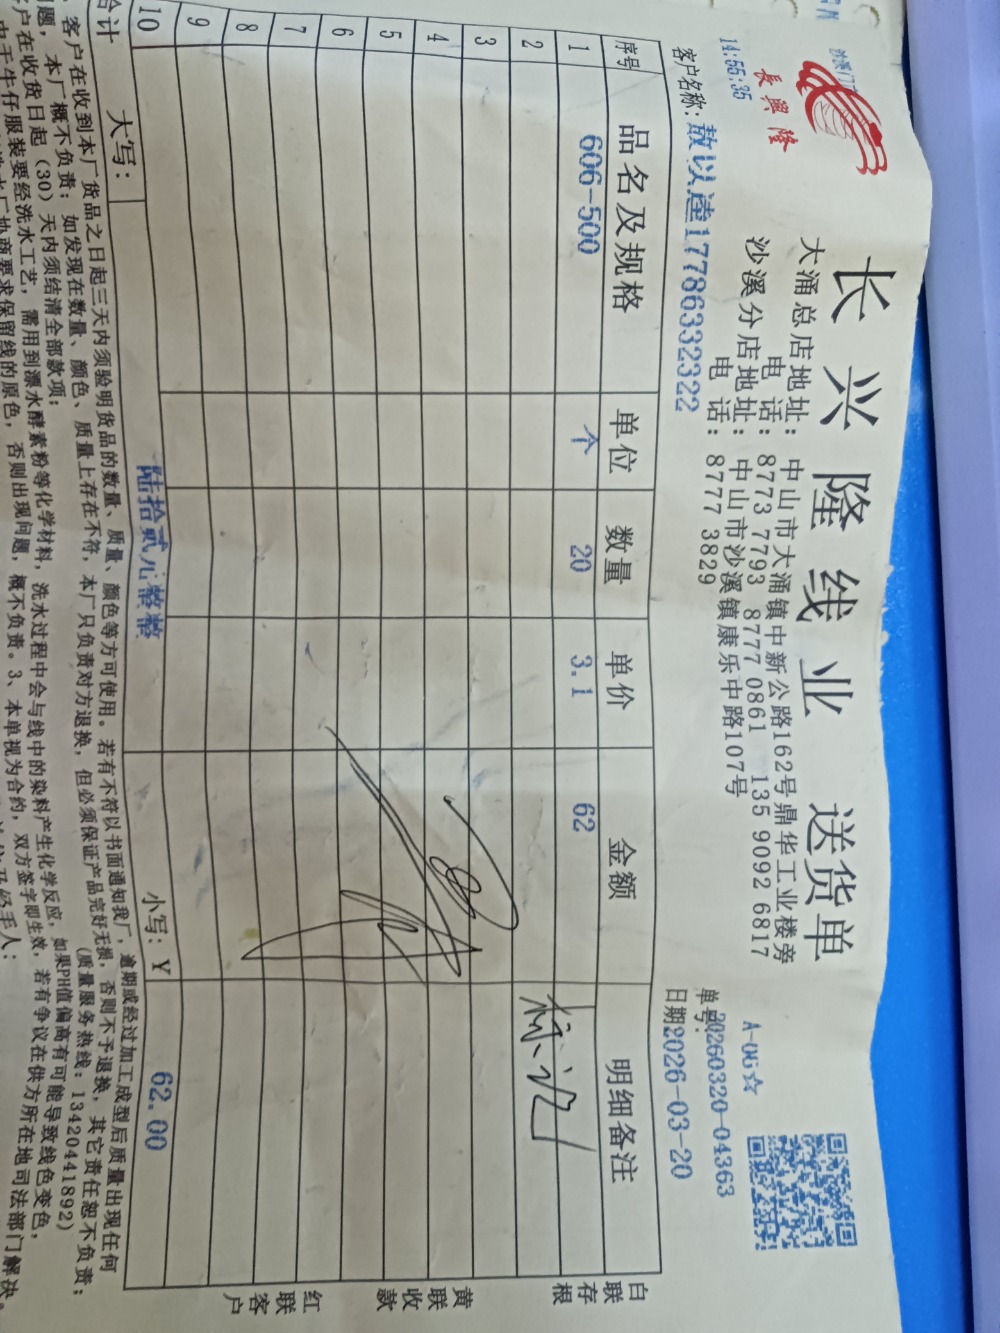 長興隆
长兴隆线业 送货单
大涌总店地址：中山市大涌镇中新公路162号鼎华工业楼旁
电 话：8773 7793 8777 0861 135 9092 6817
沙溪分店地址：中山市沙溪镇康乐中路107号
电 话：8777 3829
A-0G☆
14:55:35
单号：20260320-04363
客户名称：敖以逵17786332322
日期2026-03-20
序号 品名及规格 单位 数量 单价 金额 明细备注
1 606-500 个 20 3.1 62
2
3
4
5
6
7
8
9
10
合计 大写： 陆拾贰元整整 小写：¥ 62.00
白联存根
黄联收款
红联客户
客户在收到本厂货品之日起三天内须验明货品的数量、质量、颜色等方可使用。若有不符以书面通知我厂，逾期或经过加工成型后质量出现任何
问题，本厂概不负责；如发现在数量、颜色、质量上存在不符，本厂只负责对方退换，但必须保证产品完好无损，否则不予退换，其它责任恕不负责；
客户在收货日起（30）天内须结清全部款项；（质量服务热线：13420441892)
由于牛仔服装要经洗水工艺，需用到漂水酵素粉等化学材料，洗水过程中会与线中的染料产生化学反应，如果PH值偏高有可能导致线色变色，
协商要求保留线的原色，否则出现问题，概不负责。3、本单视为合约，双方签字即生效，若有争议在供方所在地司法部门解决。
经手人：